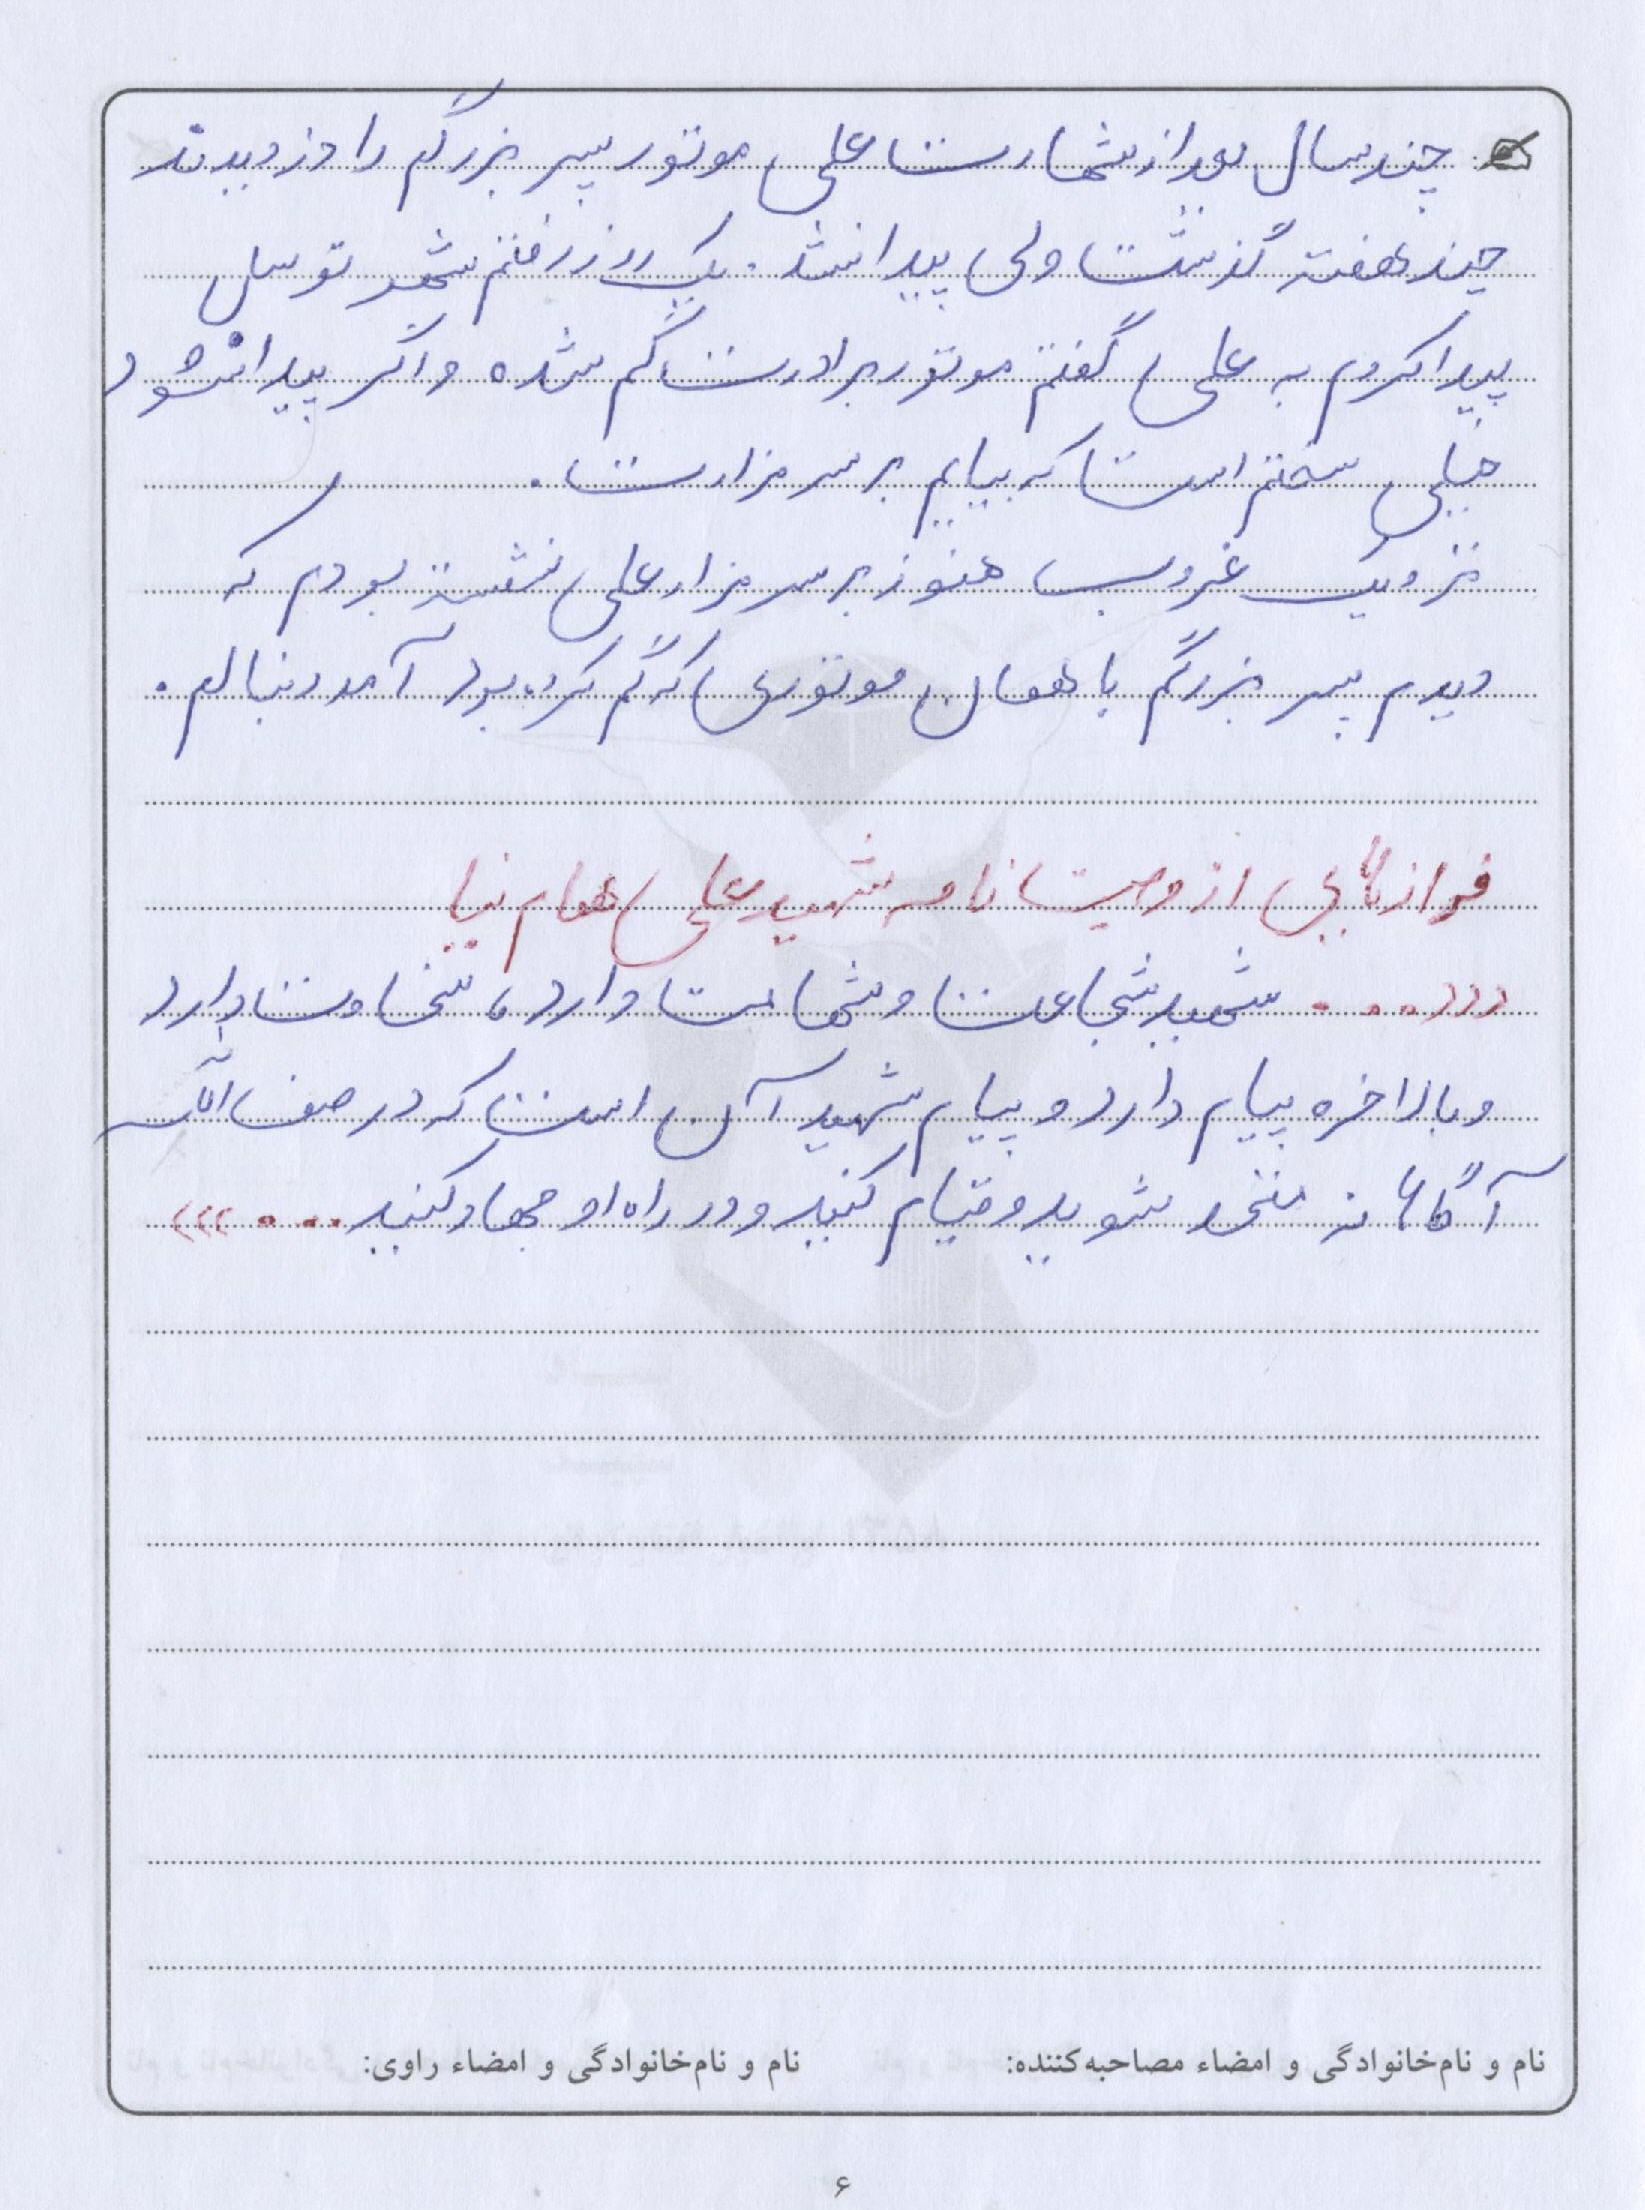 چند سال بعد از شهادت علی موتور پسر بزرگم را دزدیدند
چند هفته گذشت ولی پیدا نشد . یک روز رفتم شهر توسل
پیدا کردم به علی گفتم موتور برادرت گم شده و اگر پیدا نشود
خیلی سختم است که بیایم بر سر مزارت .
نزدیک غروب هنوز بر سر مزار علی نشسته بودم که
دیدم پسر بزرگم با همان موتوری که گم کرده بود آمد دنبالم .
فرازهایی از وصیت نامه شهید علی همام نیا
((( . . . . شهید شجاعت و شهامت دارد ، سخاوت دارد
و بالاخره پیام دارد و پیام شهید آن است که در صف
آگاهانه متحد شوید و قیام کنید و در راه او جهاد کنید . . . . )))
نام و نام‌خانوادگی و امضاء مصاحبه‌کننده: نام و نام‌خانوادگی و امضاء راوی:
۶